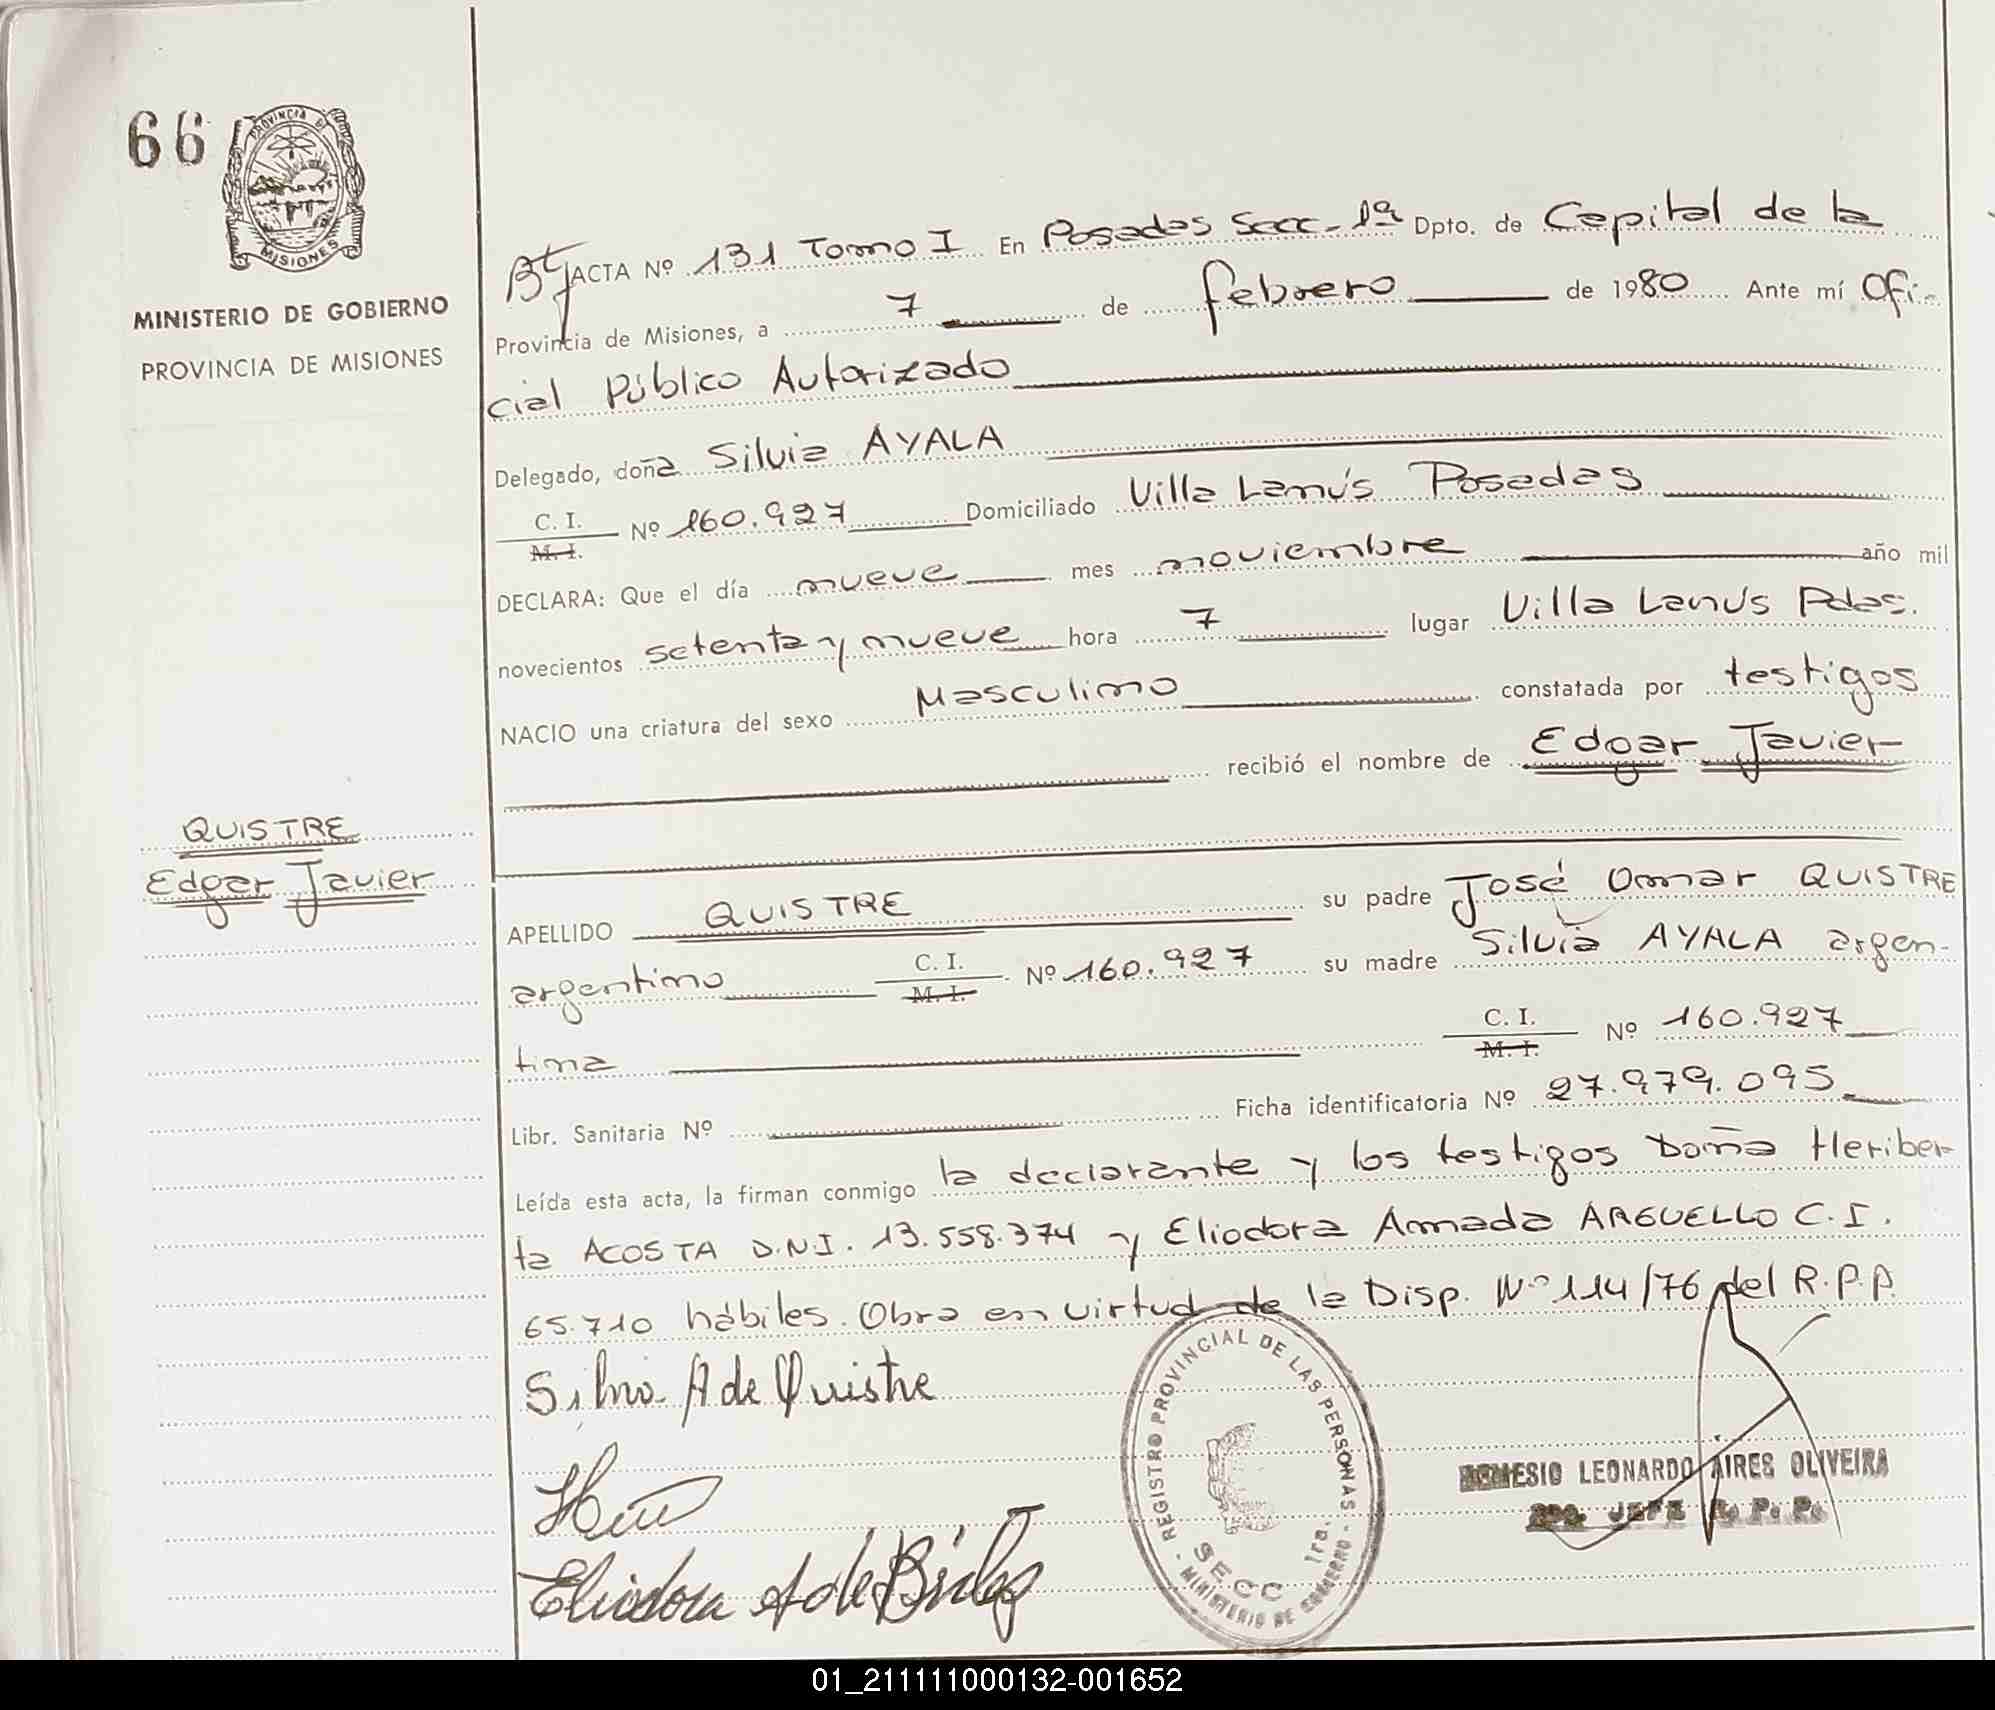 66
PROVINCIA DE
MISIONES
MINISTERIO DE GOBIERNO
PROVINCIA DE MISIONES
ACTA Nº 131 Tomo I En Posadas Secc. 1ª Dpto. de Capital de la
Provincia de Misiones, a 7 de febrero de 1980 Ante mí Ofi-
cial Público Autorizado
Delegado, doña Silvia AYALA
C. I.
M. I. Nº 160.927 Domiciliado Villa Lanús Posadas
DECLARA: Que el día nueve mes noviembre año mil
novecientos setenta y nueve hora 7 lugar Villa Lanús Pdas.
NACIO una criatura del sexo Masculino constatada por testigos
recibió el nombre de Edgar Javier
QUISTRE
Edgar Javier
APELLIDO QUISTRE su padre José Omar QUISTRE
argentino C. I. M. I. Nº 160.927 su madre Silvia AYALA argen-
tina C. I. M. I. Nº 160.927
Libr. Sanitaria Nº Ficha identificatoria Nº 27.979.095
Leída esta acta, la firman conmigo la declarante y los testigos Doña Heriber-
ta ACOSTA D.N.I. 13.558.374 y Eliodora Amada ARGUELLO C.I.
65.710 hábiles. Obra en virtud de la Disp. Nº 114/76 del R.P.P.
Silvia A de Quistre
Eliodora A de
REGISTRO PROVINCIAL DE LAS PERSONAS
SECC 1ra.
MINISTERIO DE GOBIERNO
NEMESIO LEONARDO AIRES OLIVEIRA
2do. JEFE R. P. P.
01_211111000132-001652